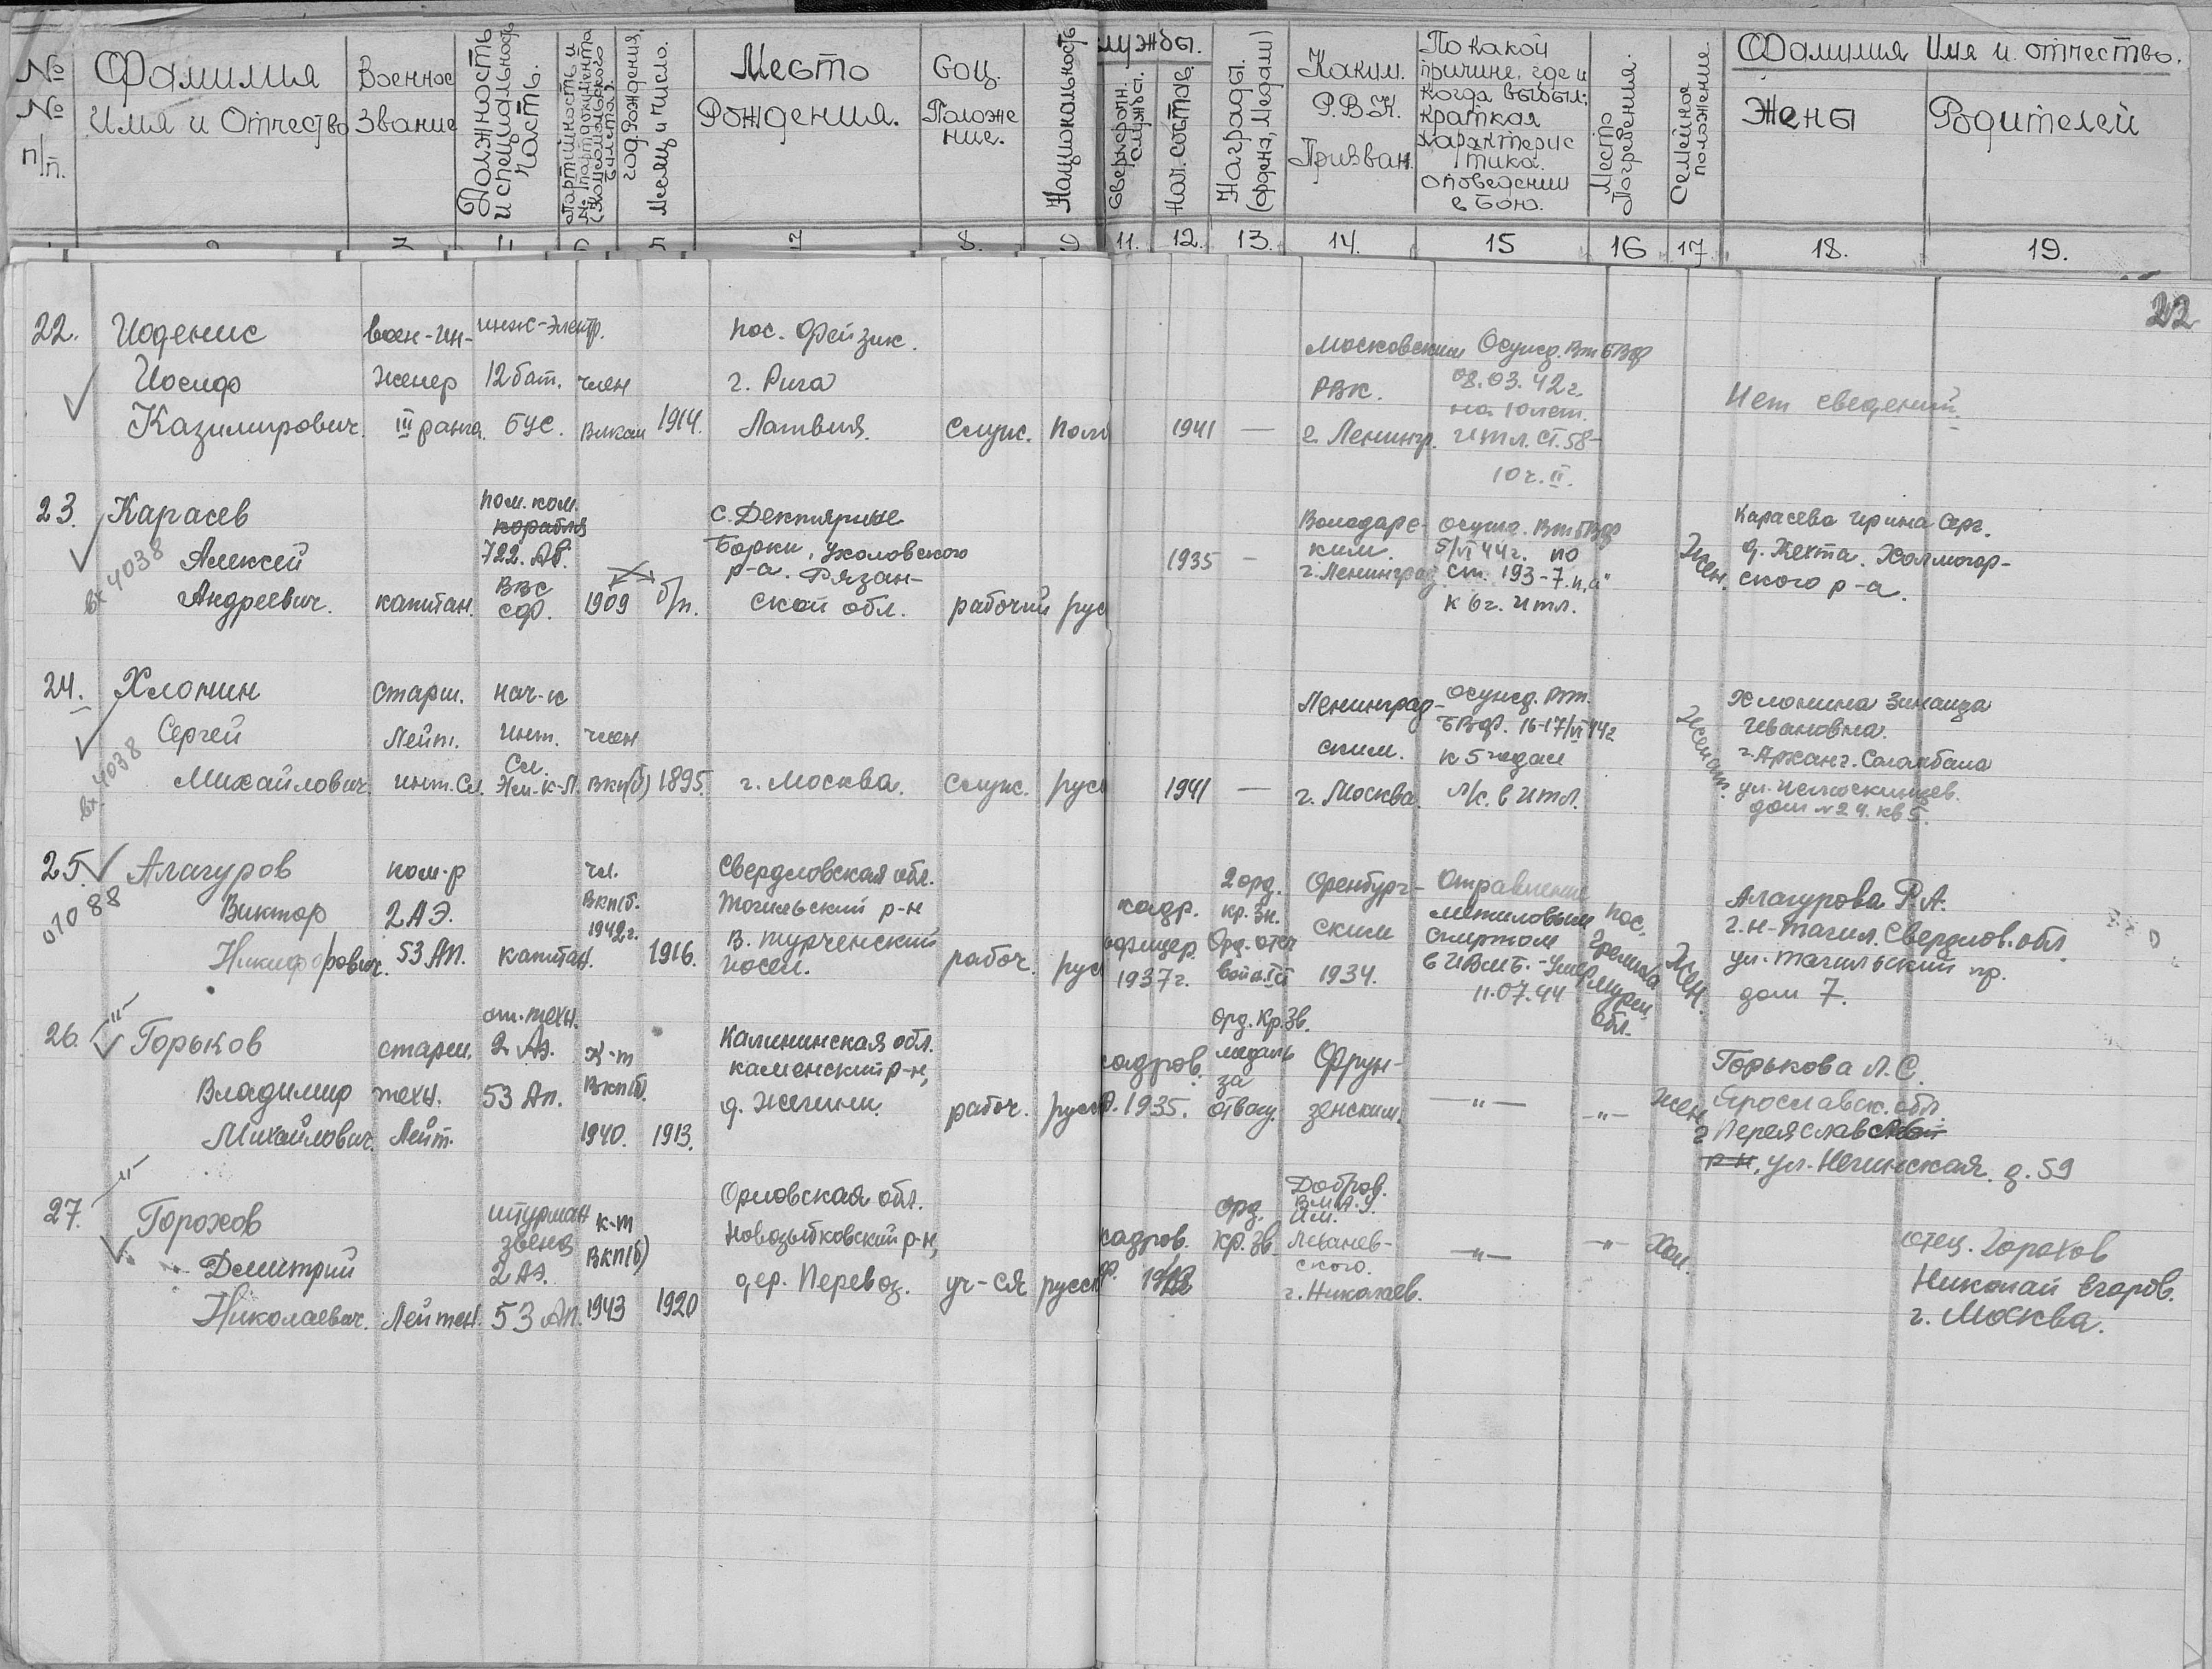 № № п/п.
Фамилия Имя и Отчество
Военное Звание
Должность и специальность часть.
Партийность и № партдокумента (комсомольского билета).
год рождения, Месяц и число.
Место Рождения.
Соц. Положение.
Национальность
службы.
сверхсрочн. службы.
Нач. состав.
Награды. (ордена, Медали)
Каким. Р.В.К. Призван.
По какой причине, где и когда выбыл; краткая характеристика о поведении в бою.
Место Погребения.
Семейное положение
Фамилия Имя и отчество.
Жены
Родителей
7 8. 9 11. 12. 13. 14. 15 16 17 18. 19.
22
22. Иоденис
Иосиф
Казимирович.
воен-ин-
женер
III ранга.
инж-электр.
12 бат.
БУС.
член
1914.
пос. Фейзик.
г. Рига
Латвия.
служ.
1941 —
Московским
РВК.
г. Ленингр.
Осужд. Вт БВф
08.03.42г.
на 10 лет.
итл. ст. 58-
10 ч. II.
Нет сведений.
23. Карасев
Алексей
Андреевич.
вх 4038
капитан.
пом. ком.
корабля
722. Аб.
ВВС
СФ.
1909 б/п.
с. Дектярные
Борки, Ухоловского
р-а. Рязан-
ской обл.
рабочий рус
1935 —
Володарс-
ким.
г. Ленинград
осужд. Вт БВф
5/VI 44г. по
ст. 193-7. п. а"
к 6 г. итл.
Жен.
Карасева Ирина Серг.
д. Кехта. Холмогор-
ского р-а.
24. Хлопин
Сергей
Михайлович
вх. 4038
старш.
Лейт.
инт. Сл.
нач-к
инт.
Сл.
член
ВКП(б) 1895.
г. Москва.
служ. русс
1941 —
Ленинград-
ским.
г. Москва
осужд. Вт.
БВФ. 16-17/VI 44г
к 5 годам
л/с. в итл.
Женат.
Хлопина Зинаида
Ивановна.
г. Арханг. Соломбала
ул. Челюскинцев.
дом № 24. кв 5.
25. Алагуров
Виктор
Никифорович.
01088
ком-р
2 АЭ.
53 АП.
капитан.
чл.
ВКП(б.
1942г.
1916.
Свердловская обл.
Тогильский р-н
В. Турченский
посел.
рабоч. рус
кадр.
офицер
1937г.
2 орд.
кр. Зн.
Орд. отеч
войн. II
Оренбург-
ским
1934.
Отравление
метиловым
спиртом
в ИВМБ. - Умер
11.07.44
пос.
Гремиха
Мурм.
обл.
Жен.
Алагурова Р. А.
г. Н-Тагил. Свердлов. обл.
ул. Тагильский пр.
дом 7.
26. —"— Горьков
Владимир
Михайлович.
старш.
техн.
Лейт.
ст. техн.
2 Аэ.
53 Ап.
К-т
ВКП(б)
1940. 1913.
Калининская обл.
каменский р-н,
рабоч. русс
кадров.
1935.
Орд. Кр. Зв.
медаль
за
отвагу.
Фрун-
зенским.
—"— —"— жен
Горькова Л. С.
Ярославск. обл.
г Переяславской
р-н, ул. Нечинская. д. 59
27. —"— Горохов
Дмитрий
Николаевич. Лейтен.
штурман
звена
2 Аэ.
53 Ап.
к-т
ВКП(б)
1943 1920
Орловская обл.
Новозыбковский р-н,
дер. Перевоз.
уч-ся русск
кадров.
орд.
кр. Зв
Добров.
В.М.А.У.
им.
Леванев-
ского.
г. Николаев.
—"— —"— Хол.
отец. Горохов
Николай Егоров.
г. Москва.